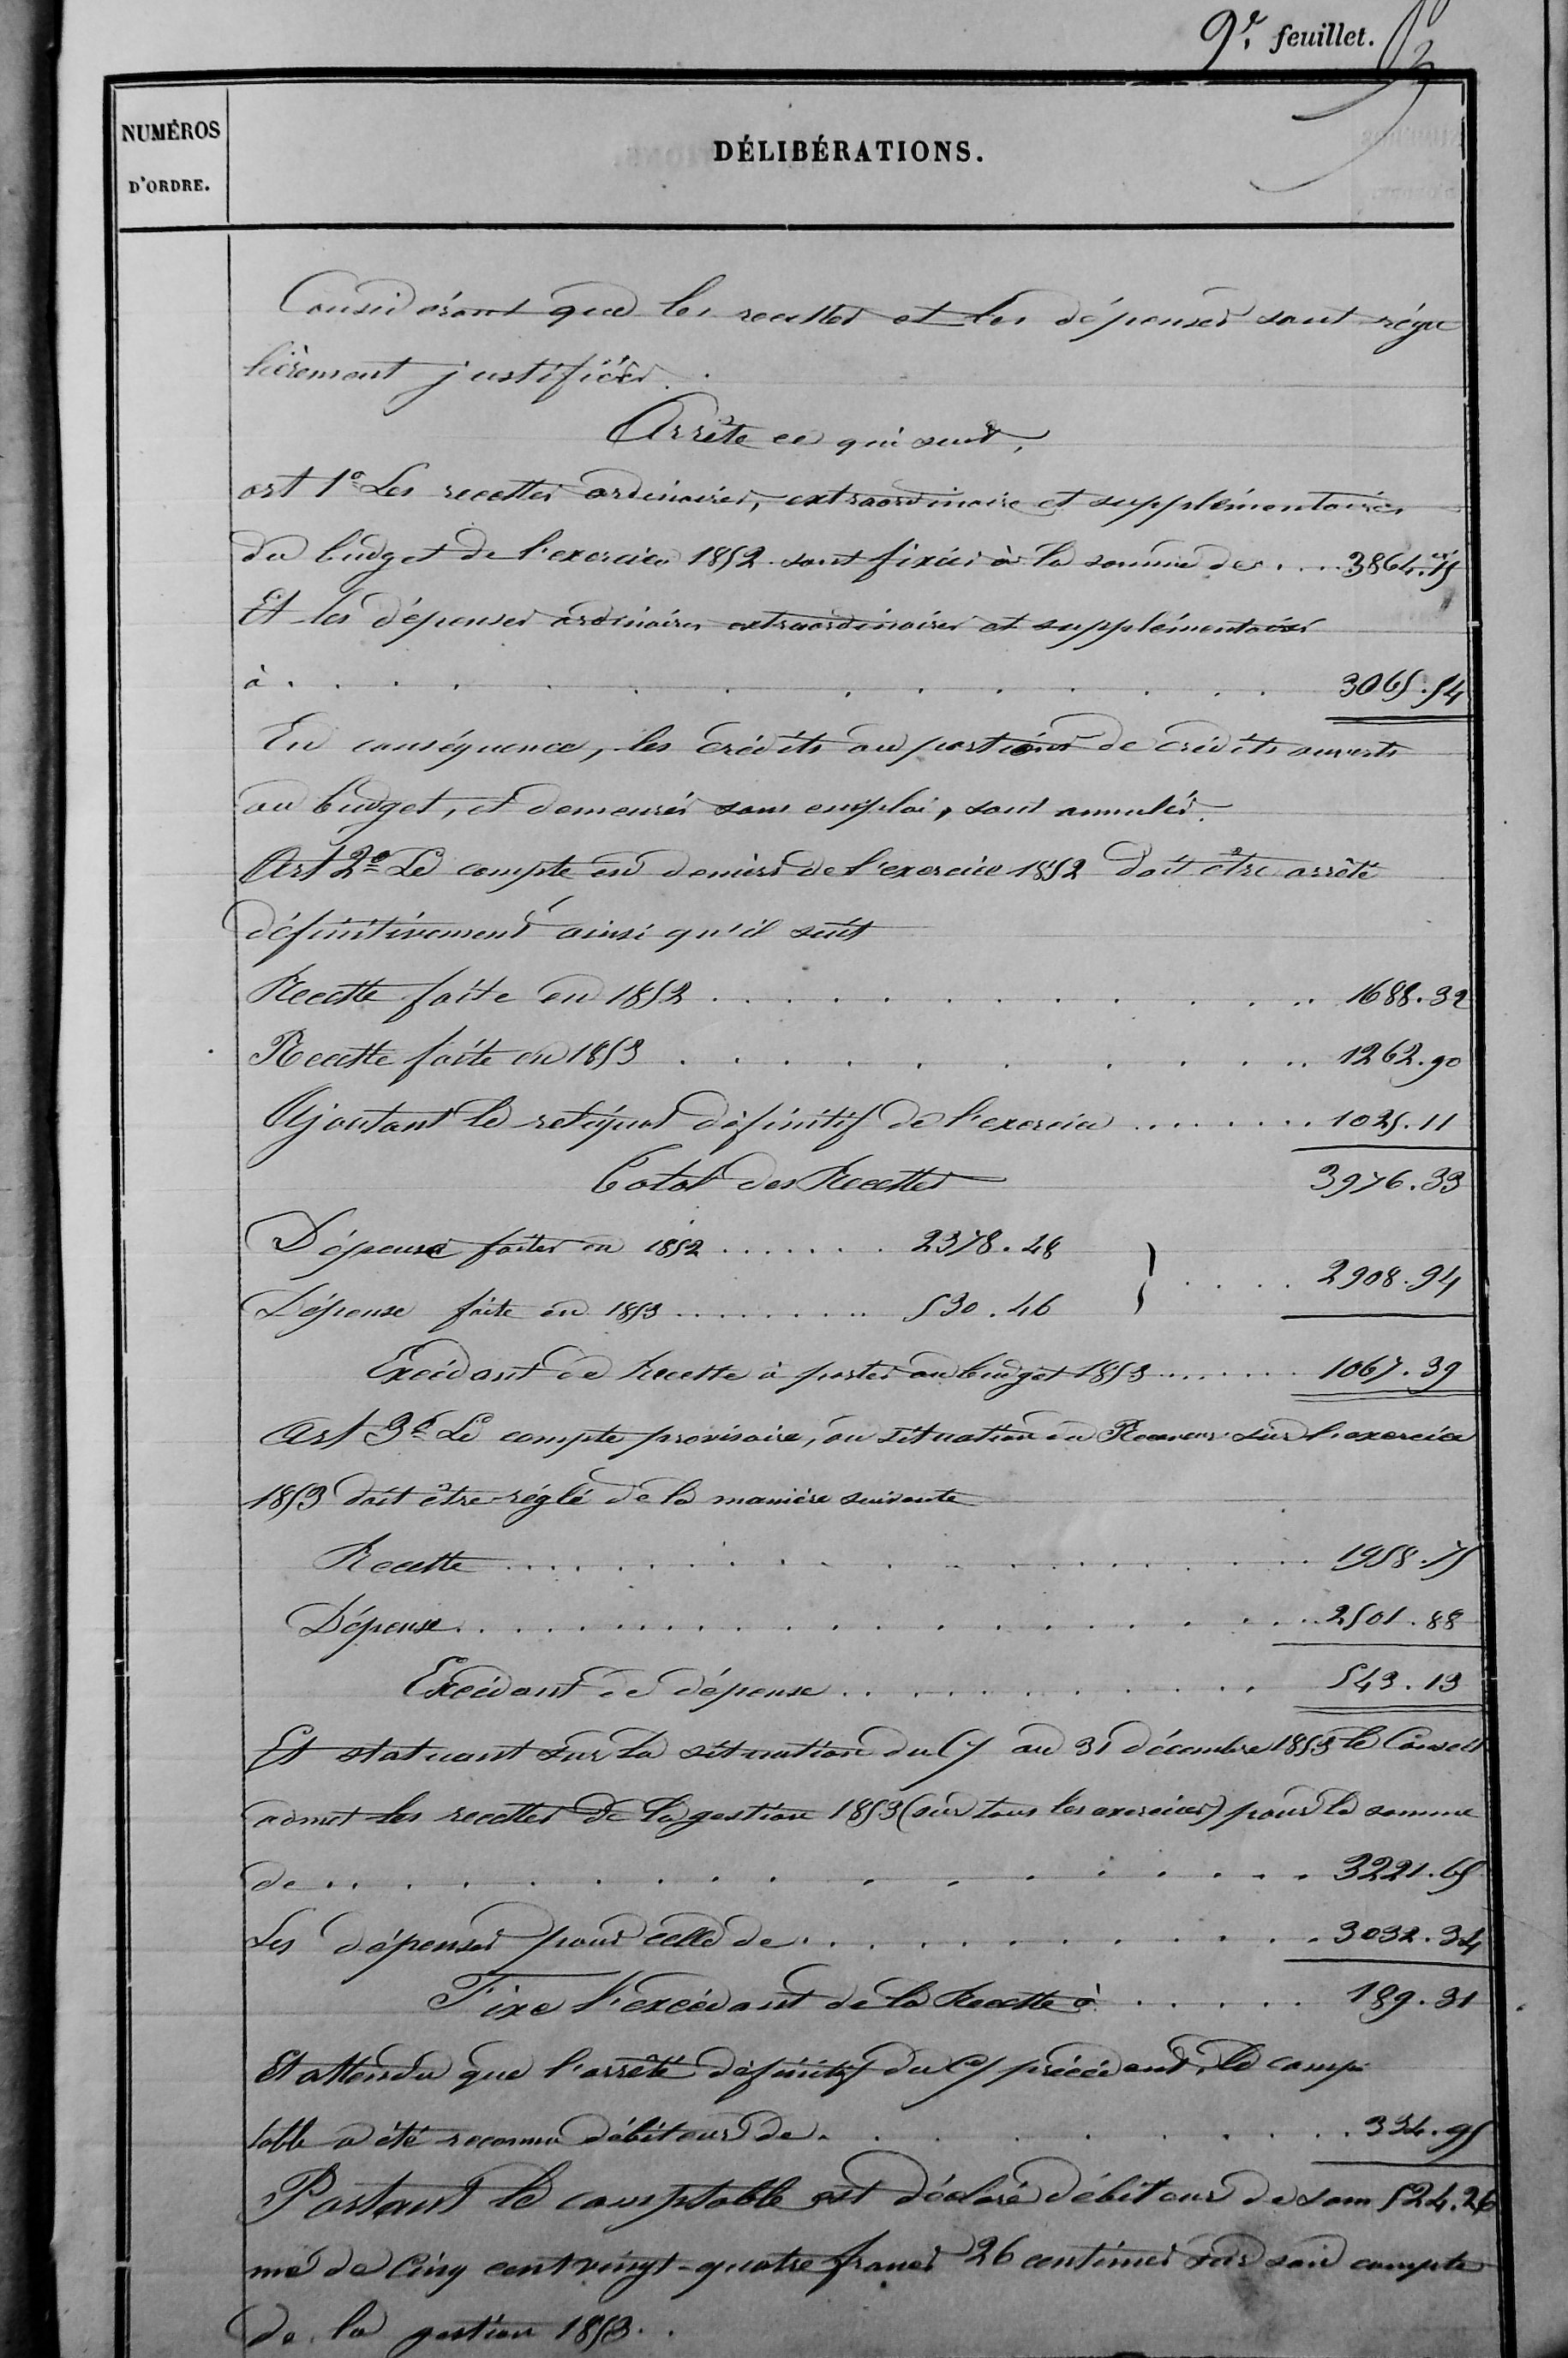 9e. feuillet.
NUMÉROS
D'ORDRE.
DÉLIBÉRATIONS.
Considérant que les recettes et les dépenses sont régu
lièrement justifiées.
Arrête ce qui suit,
art 1o Les recettes ordinaires, extraordinaire et supplémentaires
du budget de l'exercice 1852 sont fixées à la somme de . . . . 3864.75
Et les dépenses ordinaires extraordinaires et supplémentaires
à . . . . . . . . . . . . 3065.54
En conséquence, les crédits ou portions de crédits ouverts
au budget, et demeurés sans emploi, sont annulés.
Art 2e Le compte en deniers de l'exercice 1852 doit être arrêté
définitivement ainsi qu'il suit
Recette faite en 1852 . . . . . . . . . . 1688.32
Recette faite en 1853 . . . . . . . . . . 1262.90
Ajoutant le reliquat définitif de l'exercice . . . . . . . 1025.11
Total des Recettes 3976.33
Dépense faites en 1852 . . . . . . . 2378.48
} . . . . 2908.94
Dépense faite en 1853 . . . . . . . . 530.46
Excédant de Recette à porter au budget 1853 . . . . . . . 1067.39
Art 3e Le compte provisoire, ou situation du Receveur sur l'exercice
1853 doit être réglé de la manière suivante
Recette . . . . . . . . . . . . . . 1958.75
Dépense . . . . . . . . . . . . . . 2501.88
Excédant de dépense . . . . . . . . . . 543.13
Et statuant sur la situation du au 31 décembre 1853 le Conseil
admet les recettes de la gestion 1853 (sur tous les exercices) pour la somme
de . . . . . . . . . . . . . . 3221.65
Les dépenses pour celle de . . . . . . . . . . 3032.34
Fixe l'excédant de la Recette à . . . . . 189.31
Et attendu que l'arrêté définitif du précédent, le comp
table a été reconnu débiteur de . . . . . . . . 334.95
Partant le comptable est déclaré débiteur de som 524.26
me de Cinq cent vingt-quatre francs 26 centimes sur son compte
de la gestion 1853.